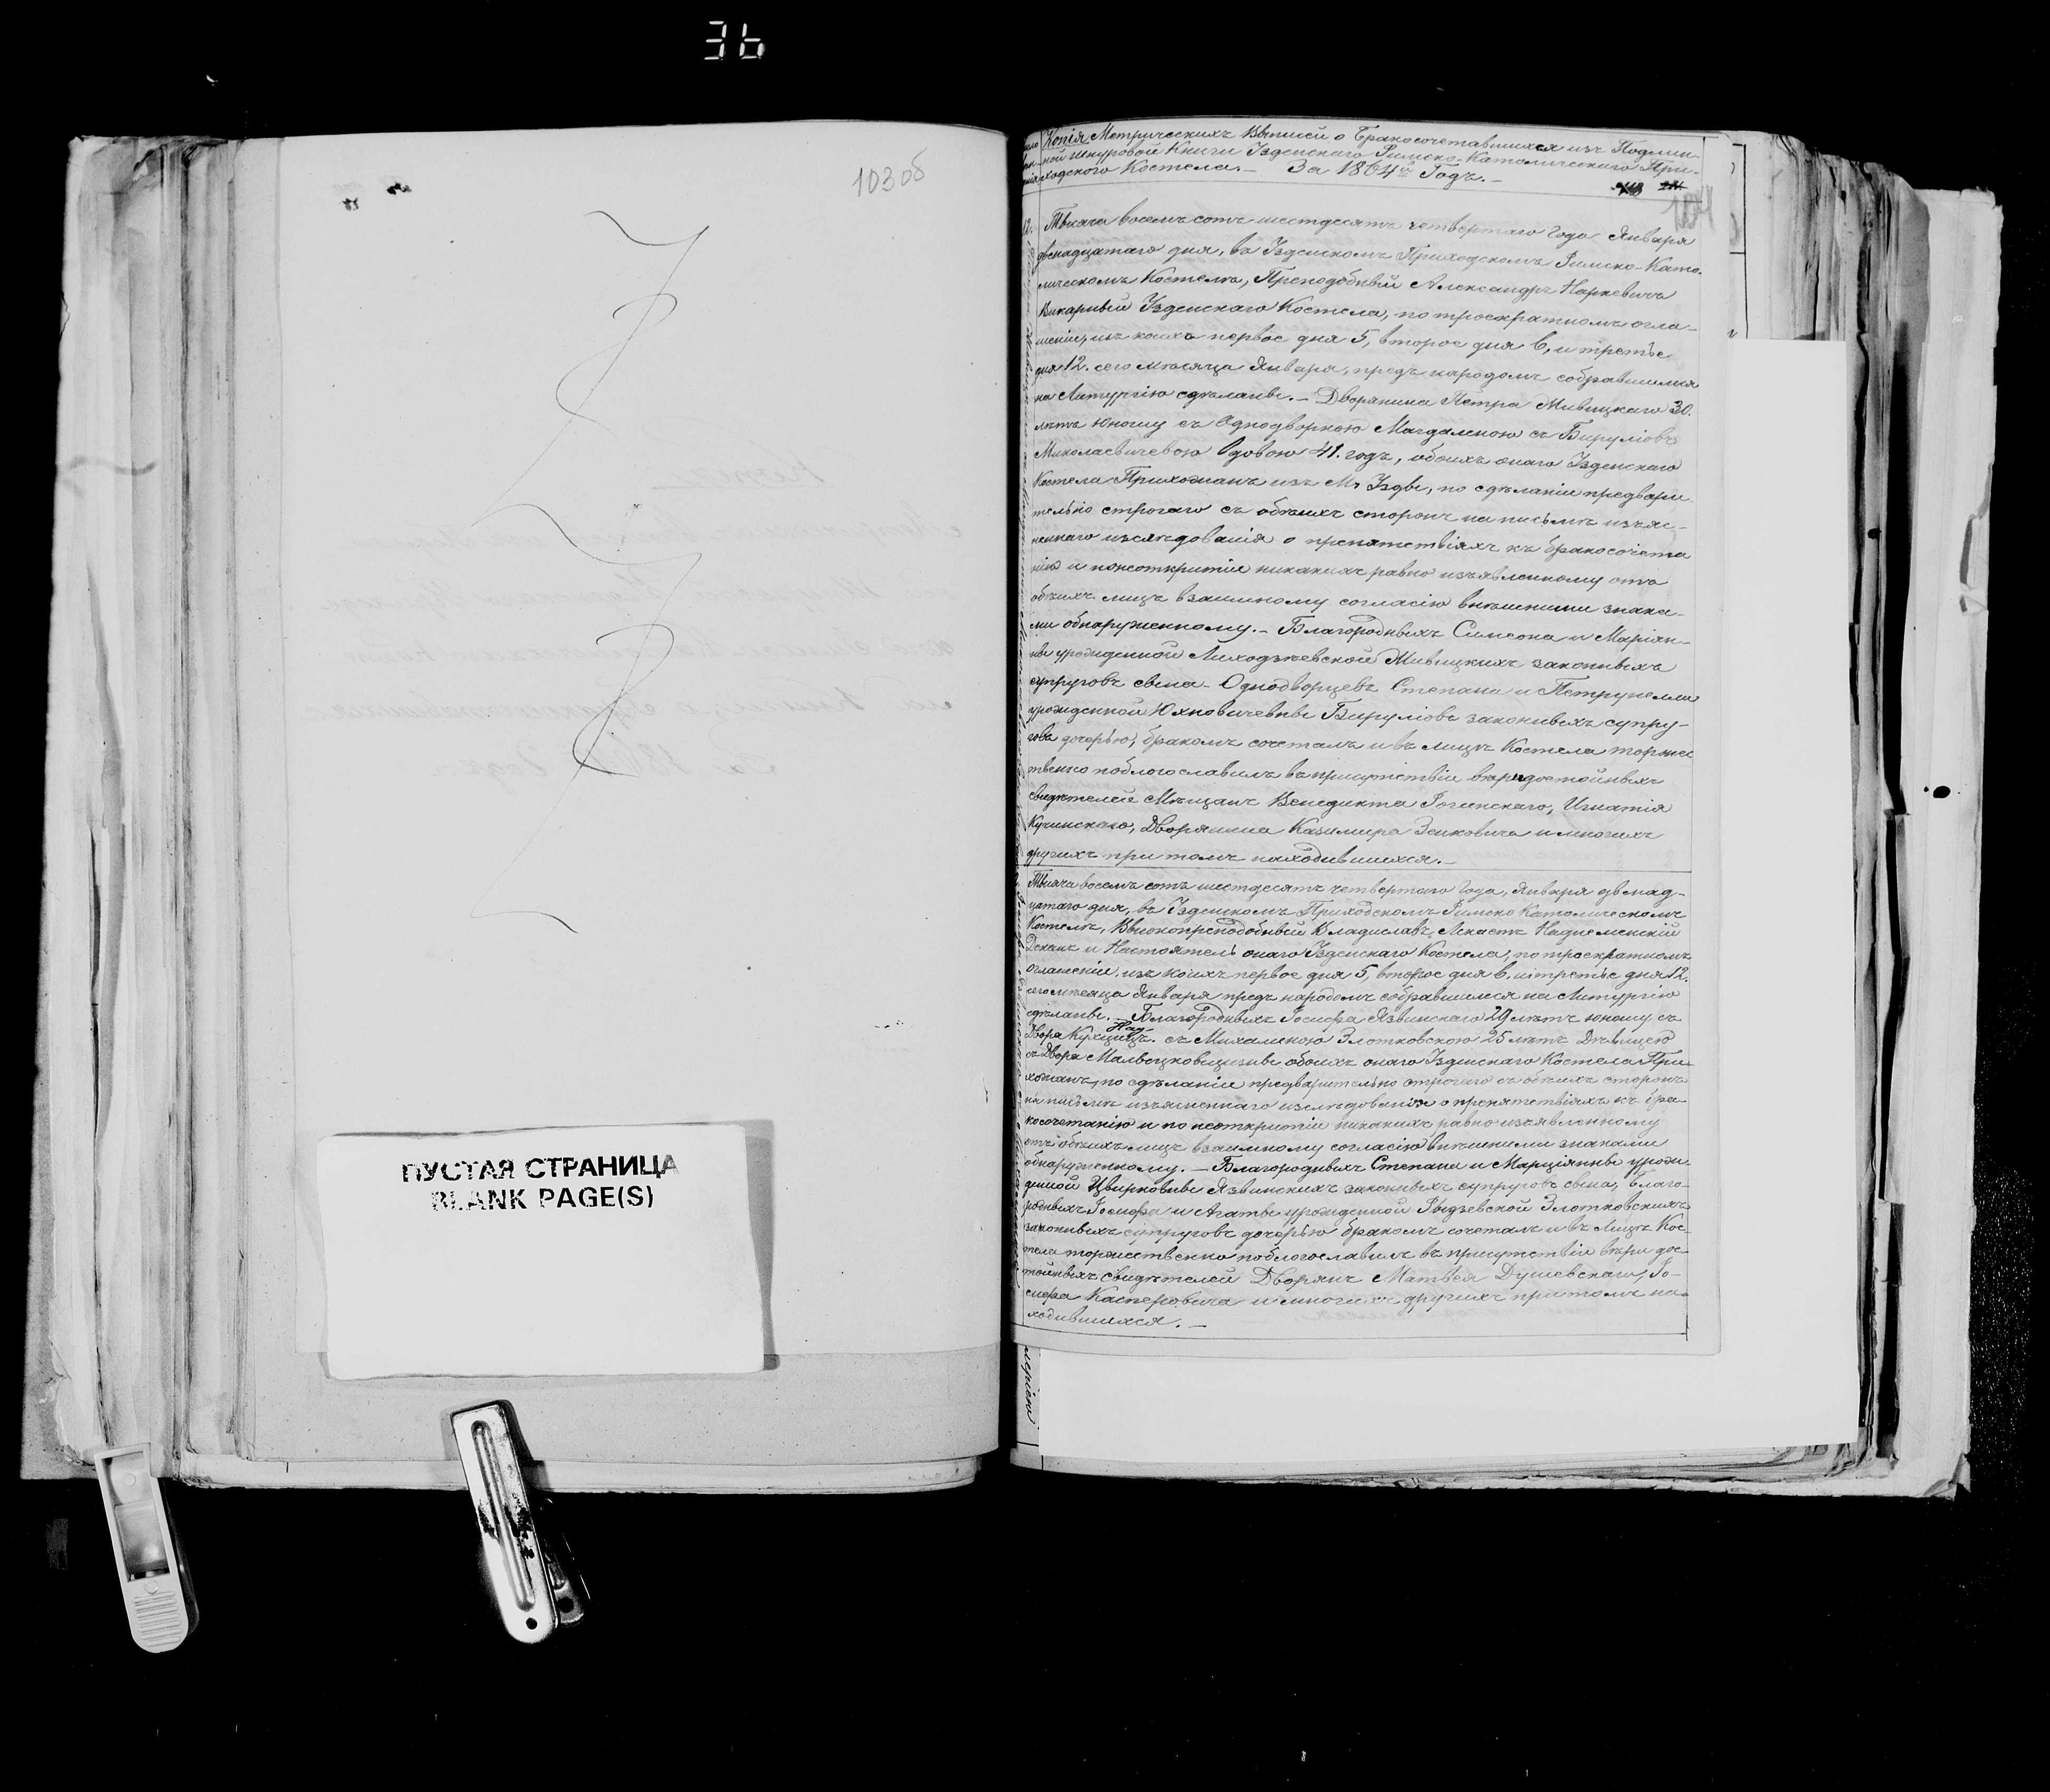 36
103 об
ПУСТАЯ СТРАНИЦА
BLANK PAGE(S)
Копія Метрическихъ Выписей о Бракосочетавшихся изъ Подлин-
ной шнуровой Книги Узденскаго Римско-Католическаго При-
ходского Костела. — За 1864й Годъ. —
104
12.
Тысяча восемь сотъ шестдесятъ четвертаго Года Января
двенадцатаго дня, въ Узденскомъ Приходскомъ Римско-Като-
лическомъ Костелѣ, Преподобный Александръ Наркевичъ
Викарный Узденскаго Костела, по троекратномъ огла-
шеніи, изъ коихъ первое дня 5, второе дня 6, и третье
дня 12. сего мѣсяца Января, предъ народомъ собравшимся
на Литургію сдѣланы. — Дворянина Петра 30.
лѣтъ Юношу съ Однодворкою Магдаленою съ Бируліовъ
Миколаевичевою Вдовою 41. годъ, обоихъ онаго Узденскаго
Костела Прихожанъ изъ М. Узды, по сдѣланіи предвари
тельно строгаго съ обѣихъ сторонъ на письмѣ изъяс-
неннаго изслѣдованія о препятствіяхъ къ бракосочета
нію и понеоткрытіи никакихъ равно изъявленному отъ
обѣихъ лицъ взаимному согласію внѣшними знака-
ми обнаруженному. — Благородныхъ Симеона и Маріян-
ны урожденной законныхъ
супруговъ сына — Однодворцевъ Степана и Петрунелли
урожденной Юхновичевны Бируліовъ законныхъ супру-
говъ дочерью, бракомъ сочеталъ и въ лицѣ Костела торжес
твенно поблогославилъ въ присутствіи вѣридостойныхъ
свидѣтелей Мѣщанъ Венедикта Рогинскаго, Игнатія
Кучинскаго, Дворянина Казимира Зенковича и многихъ
другихъ при томъ находившихся. —
Тысяча восемь сотъ шестдесятъ четвертаго Года, Января двенад-
цатаго дня, въ Узденскомъ Приходскомъ Римско Католическомъ
Костелѣ, Высокопреподобный Владиславъ Наднеменскій
Деканъ и Настоятель онаго Узденскаго Костела, по троекратномъ
оглашеніи, изъ коихъ первое дня 5, второе дня 6. и третье дня 12.
сего мѣсяца Января предъ народомъ собравшимся на Литургію
сдѣланы. — Благородныхъ Іосифа Язвинскаго 29 лѣтъ юношу съ
Двора съ Михалиною Злотковскою 25 лѣтъ Дѣвицею
съ Двора обоихъ онаго Узденскаго Костела При-
хожанъ, по сдѣланіи предварительно строгаго съ обѣихъ сторонъ
на письмѣ изъясненнаго изслѣдованія о препятствіяхъ къ бра-
косочетанію и по неоткрытіи никакихъ равно изъявленному
отъ обѣихъ лицъ взаимному согласію внѣшними знаками
обнаруженному. — Благородныхъ Степана и Марціянны урож-
денной Цвирковны Язвинскихъ законныхъ супруговъ сына, благо-
родныхъ Іосифа и Агаты урожденной Злотковскихъ
законныхъ супруговъ дочерью бракомъ сочеталъ и въ Лицѣ Кос-
тела торжественно поблогославилъ въ присутствіи вѣри дос-
тойныхъ свидѣтелей Дворянъ Матвея Душевскаго, Іо-
сифа Касперовича и многихъ другихъ при томъ на-
ходившихся. —